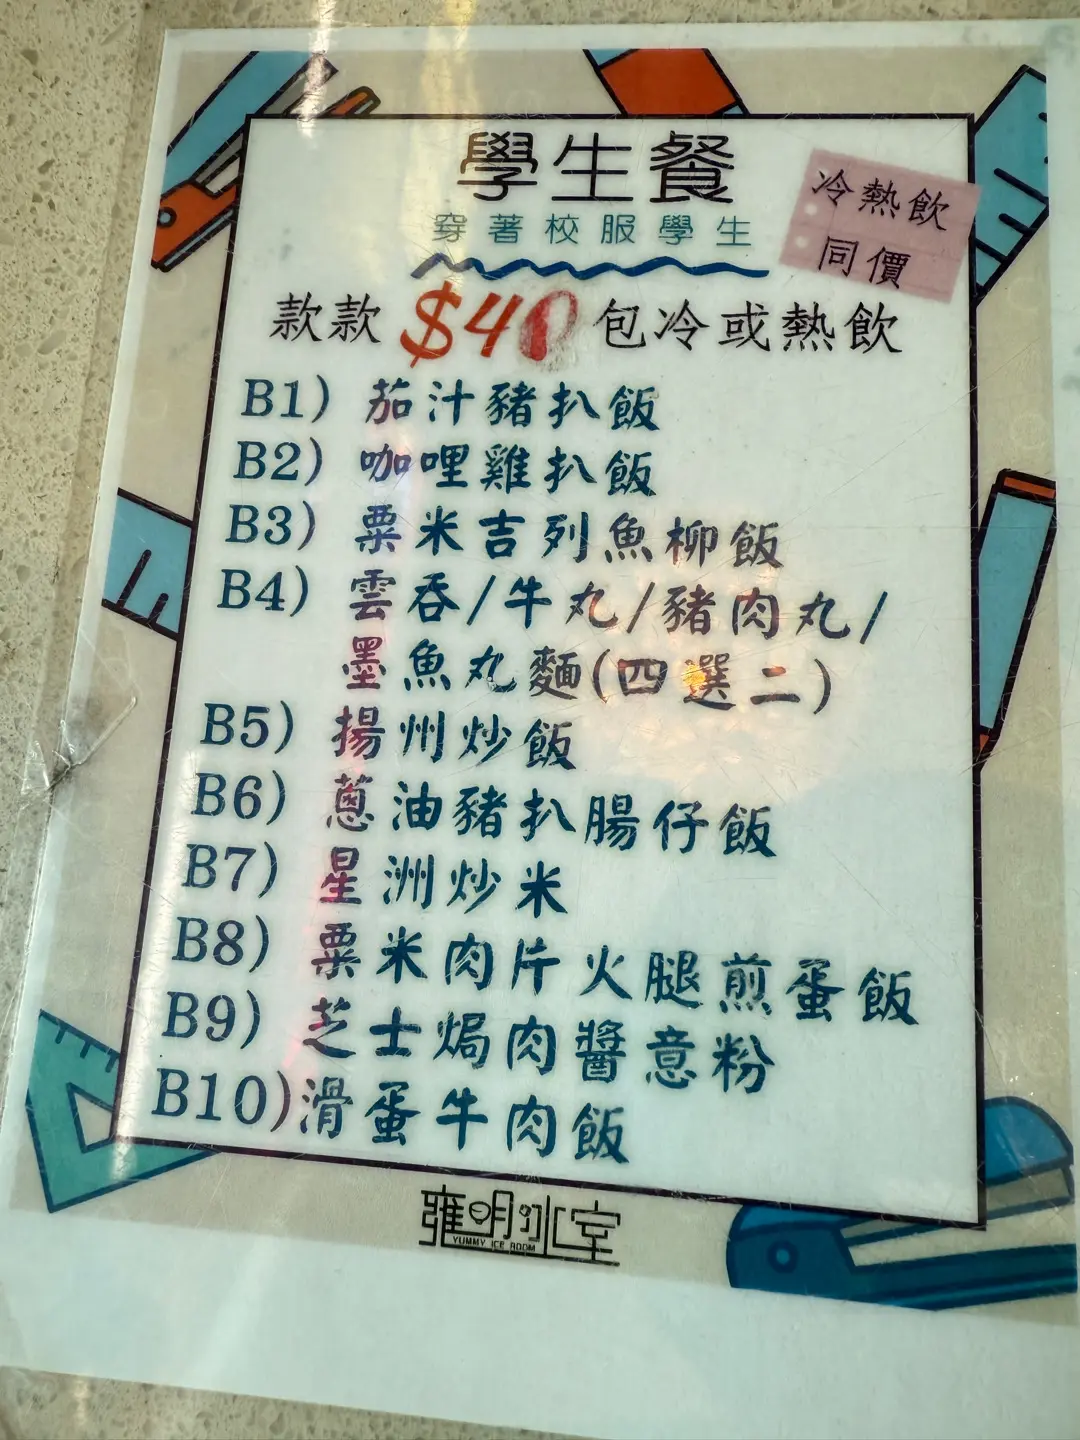 學生餐
穿著校服學生
冷熱飲
同價
款款 $40 包冷或熱飲
B1) 茄汁豬扒飯
B2) 咖哩雞扒飯
B3) 粟米吉列魚柳飯
B4) 雲吞/牛丸/豬肉丸/
墨魚丸麵(四選二)
B5) 揚州炒飯
B6) 蔥油豬扒腸仔飯
B7) 星洲炒米
B8) 粟米肉片火腿煎蛋飯
B9) 芝士焗肉醬意粉
B10) 滑蛋牛肉飯
雍明冰室
YUMMY ICE ROOM